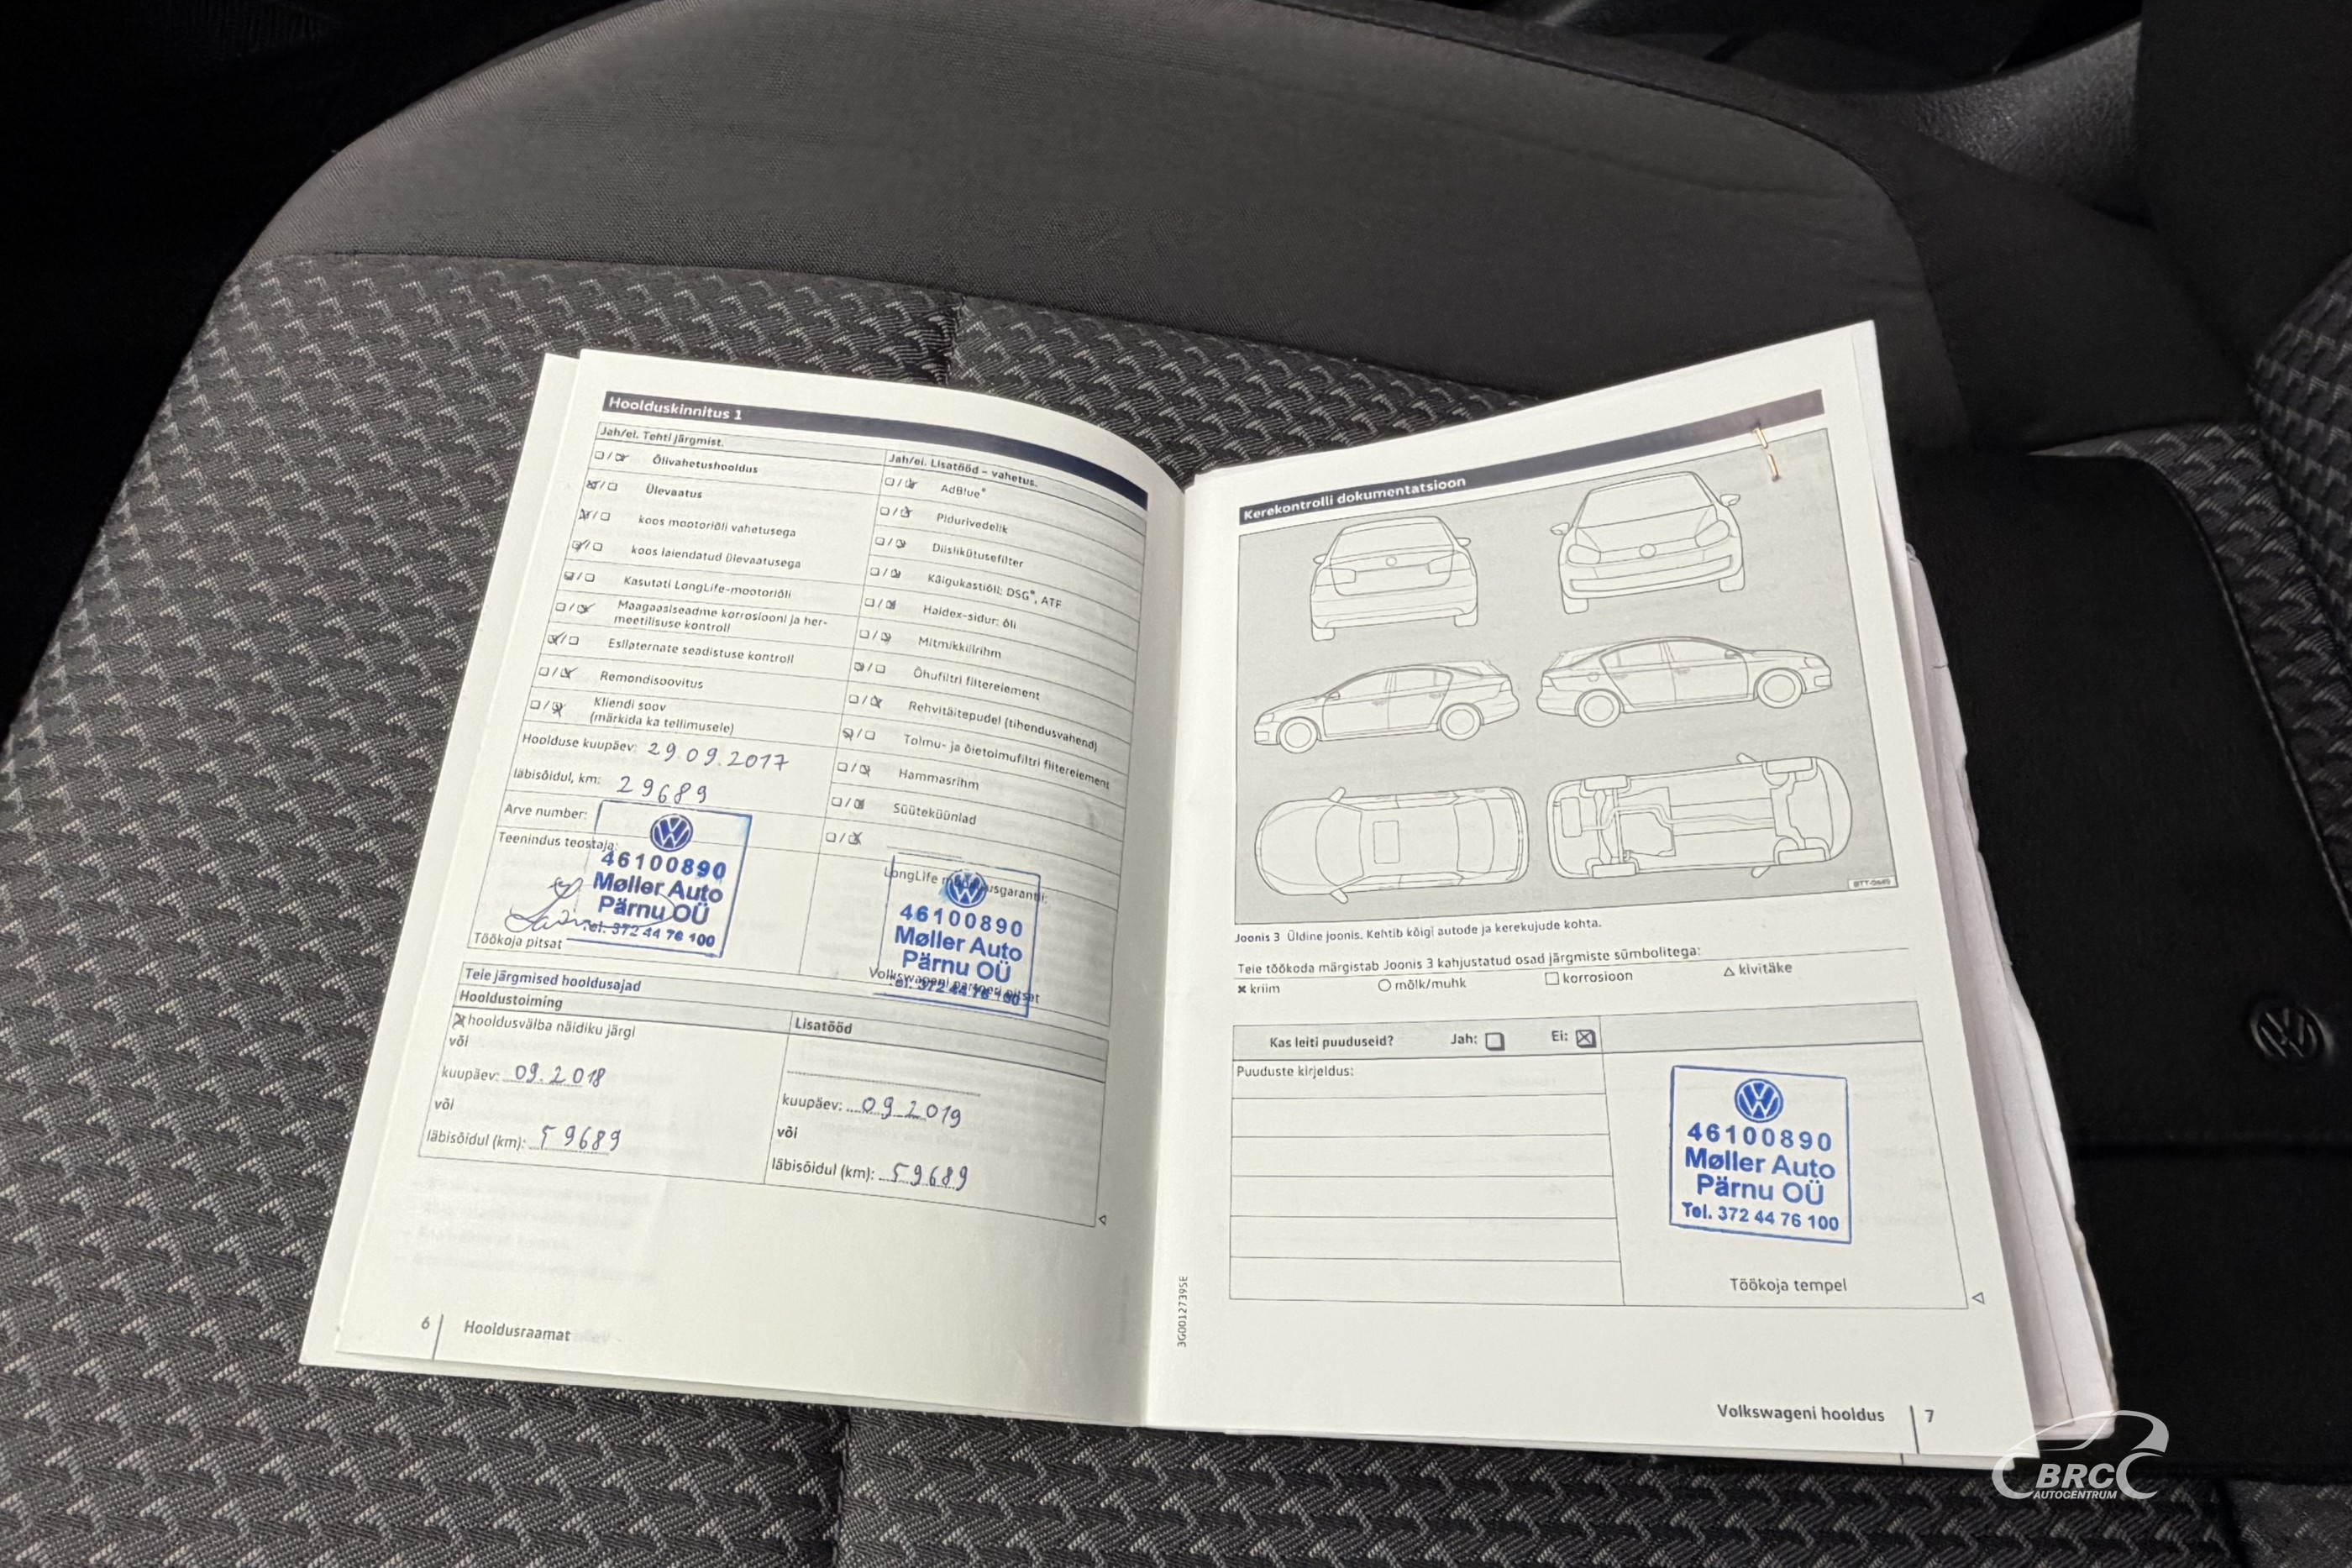 Hoolduskinnitus 1
Jah/ei. Tehti järgmist.
Õlivahetushooldus
Ülevaatus
koos mootoriõli vahetusega
koos laiendatud ülevaatusega
Kasutati LongLife-mootoriõli
Maagaasiseadme korrosiooni ja her-
meetilisuse kontroll
Esilaternate seadistuse kontroll
Remondisoovitus
Kliendi soov
(märkida ka tellimusele)
Hoolduse kuupäev: 29.09.2017
läbisõidul, km: 29689
Arve number:
Teenindus teostaja:
46100890
Møller Auto
Pärnu OÜ
Tel. 372 44 76 100
Töökoja pitsat
Jah/ei. Lisatööd – vahetus.
AdBlue®
Pidurivedelik
Diislikütusefilter
Käigukastiõli: DSG®, ATF
Haldex-sidur: õli
Mitmikkiilrihm
Õhufiltri filtrielement
Rehvitäitepudel (tihendusvahend)
Tolmu- ja õietolmufiltri filterelement
Hammasrihm
Süüteküünlad
LongLife
46100890
Møller Auto
Pärnu OÜ
Tel. 372 44 76 100
Volkswageni partneri pitsat
Teie järgmised hooldusajad
Hooldustoiming
hooldusvälba näidiku järgi
või
kuupäev: 09.2018
või
läbisõidul (km): 59689
Lisatööd
kuupäev: 09.2019
või
läbisõidul (km): 59689
6
Hooldusraamat
Kerekontrolli dokumentatsioon
BTT-0449
Joonis 3 Üldine joonis. Kehtib kõigi autode ja kerekujude kohta.
Teie töökoda märgistab Joonis 3 kahjustatud osad järgmiste sümbolitega:
✖ kriim ○ mõlk/muhk □ korrosioon △ kivitäke
Kas leiti puuduseid? Jah: Ei:
Puuduste kirjeldus:
46100890
Møller Auto
Pärnu OÜ
Tel. 372 44 76 100
Töökoja tempel
3G0012739SE
Volkswageni hooldus
7
BRC
AUTOCENTRUM